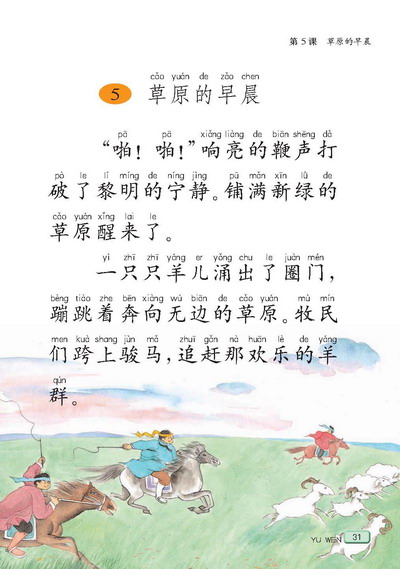 第5课 草原的早晨
cǎo yuán de zǎo chen
5 草原的早晨
pā pā xiǎng liàng de biān shēng dǎ
“啪！啪！”响亮的鞭声打
pò le lí míng de níng jìng pū mǎn xīn lǜ de
破了黎明的宁静。铺满新绿的
cǎo yuán xǐng lai le
草原醒来了。
yì zhī zhī yáng er yǒng chu le juàn mén
一只只羊儿涌出了圈门，
bèng tiào zhe bēn xiàng wú biān de cǎo yuán mù mín
蹦跳着奔向无边的草原。牧民
men kuà shang jùn mǎ zhuī gǎn nà huān lè de yáng
们跨上骏马，追赶那欢乐的羊
qún
群。
YU WEN 31